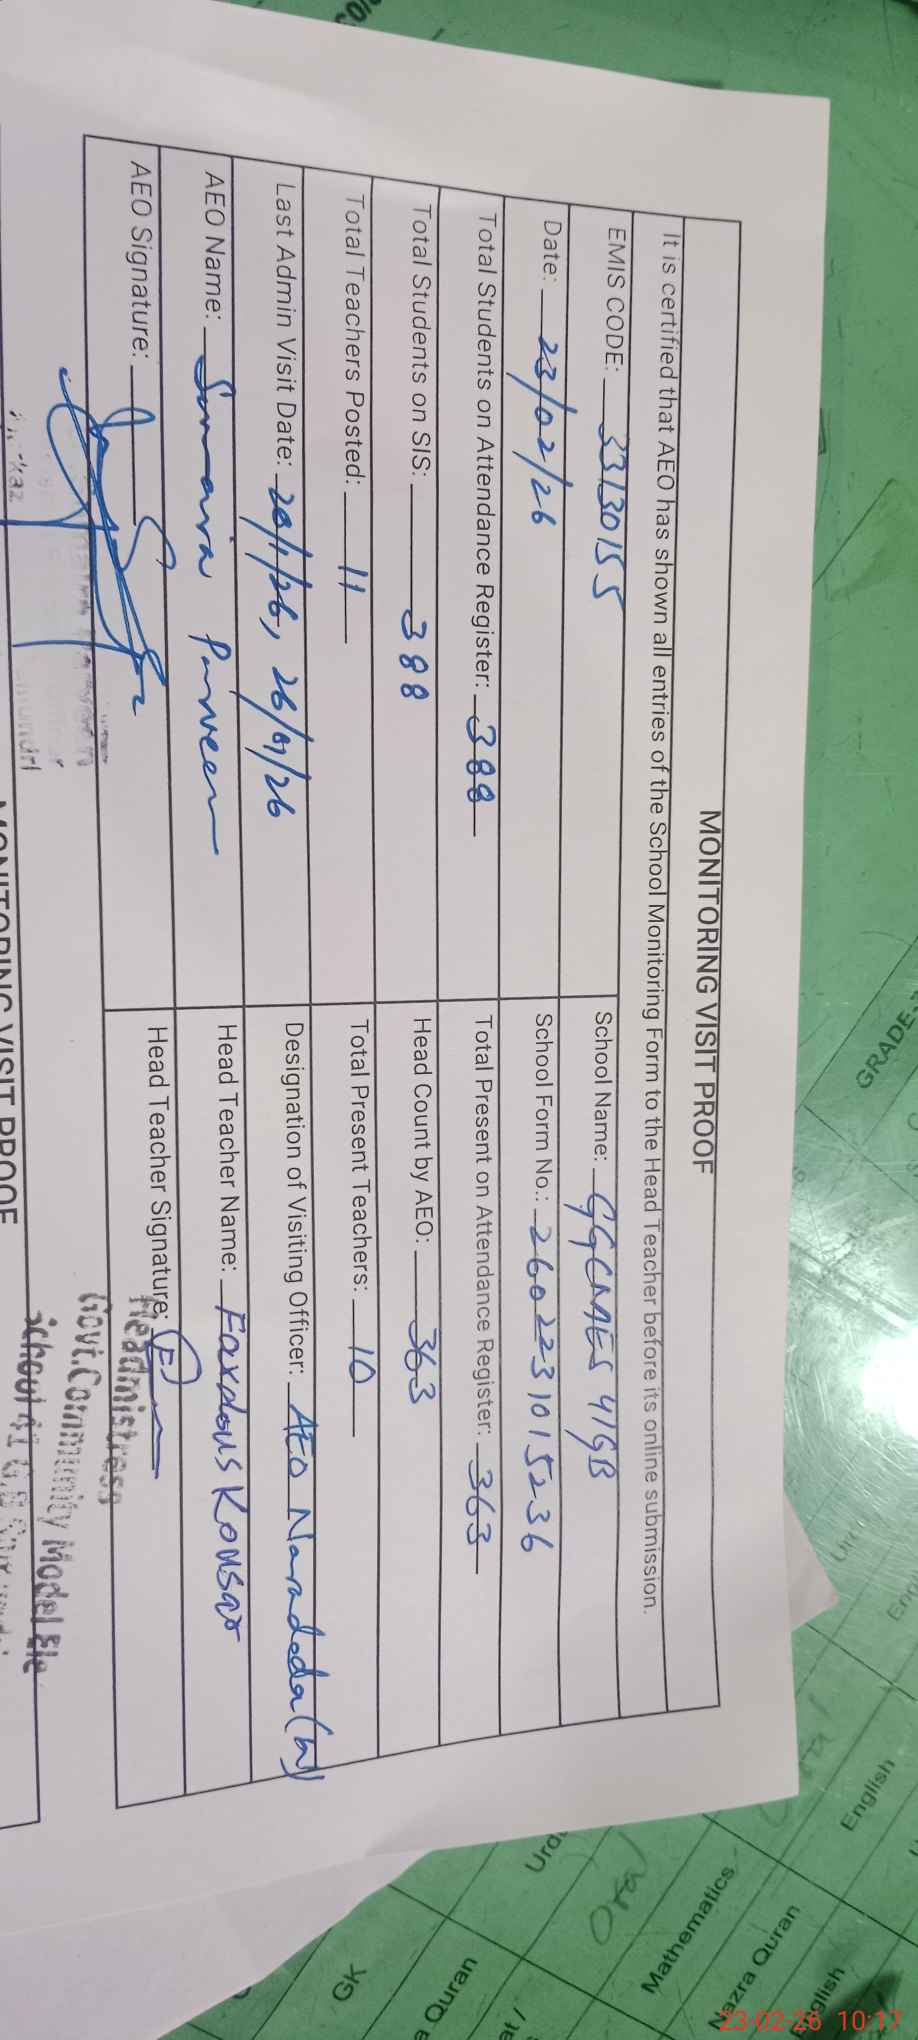 MONITORING VISIT PROOF
It is certified that AEO has shown all entries of the School Monitoring Form to the Head Teacher before its online submission.
EMIS CODE: 33130155 School Name: GGCMES 41GB
Date: 23/02/26 School Form No.: 2602231015236
Total Students on Attendance Register: 388 Total Present on Attendance Register: 363
Total Students on SIS: 388 Head Count by AEO: 363
Total Teachers Posted: 11 Total Present Teachers: 10
Last Admin Visit Date: 20/1/26, 26/01/26 Designation of Visiting Officer: AEO Naradada (W)
AEO Name: Sumaira Parveen Head Teacher Name: Fardous Kousar
AEO Signature: Head Teacher Signature:
Headmistress
Govt. Community Model Ele
School 41 G.B
MONITORING VISIT PROOF
GRADE
English
Mathematics
Nazra Quran
GK
Quran
Oral
23-02-26 10:17